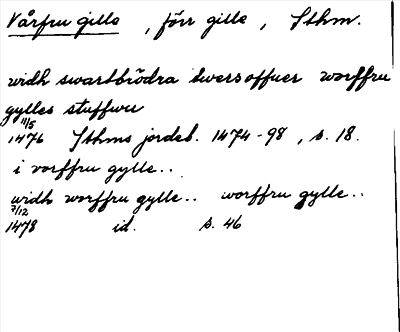 Vårfru gille, förr gille, Sthm.
widh swartbrödra twersoffuer worffru
gylles stuffwu
11/5
1476 Sthms jordeb. 1474-98, s. 18.
i vorffru gylle..
widh worffru gylle.. worffru gylle..
7/12
1478 id. s. 46